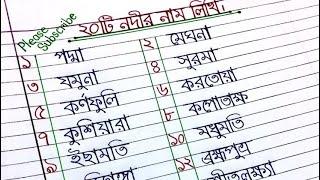 Please Subscribe
২০টি নদীর নাম লিখ।
১ পদ্মা ২ মেঘনা
৩ যমুনা ৪ সুরমা
৫ কর্ণফুলি ৬ করতোয়া
৭ কুশিয়ারা ৮ কপোতাক্ষ
৯ ইছামতি ১০ মধুমতি
১২ ব্রহ্মপুত্র